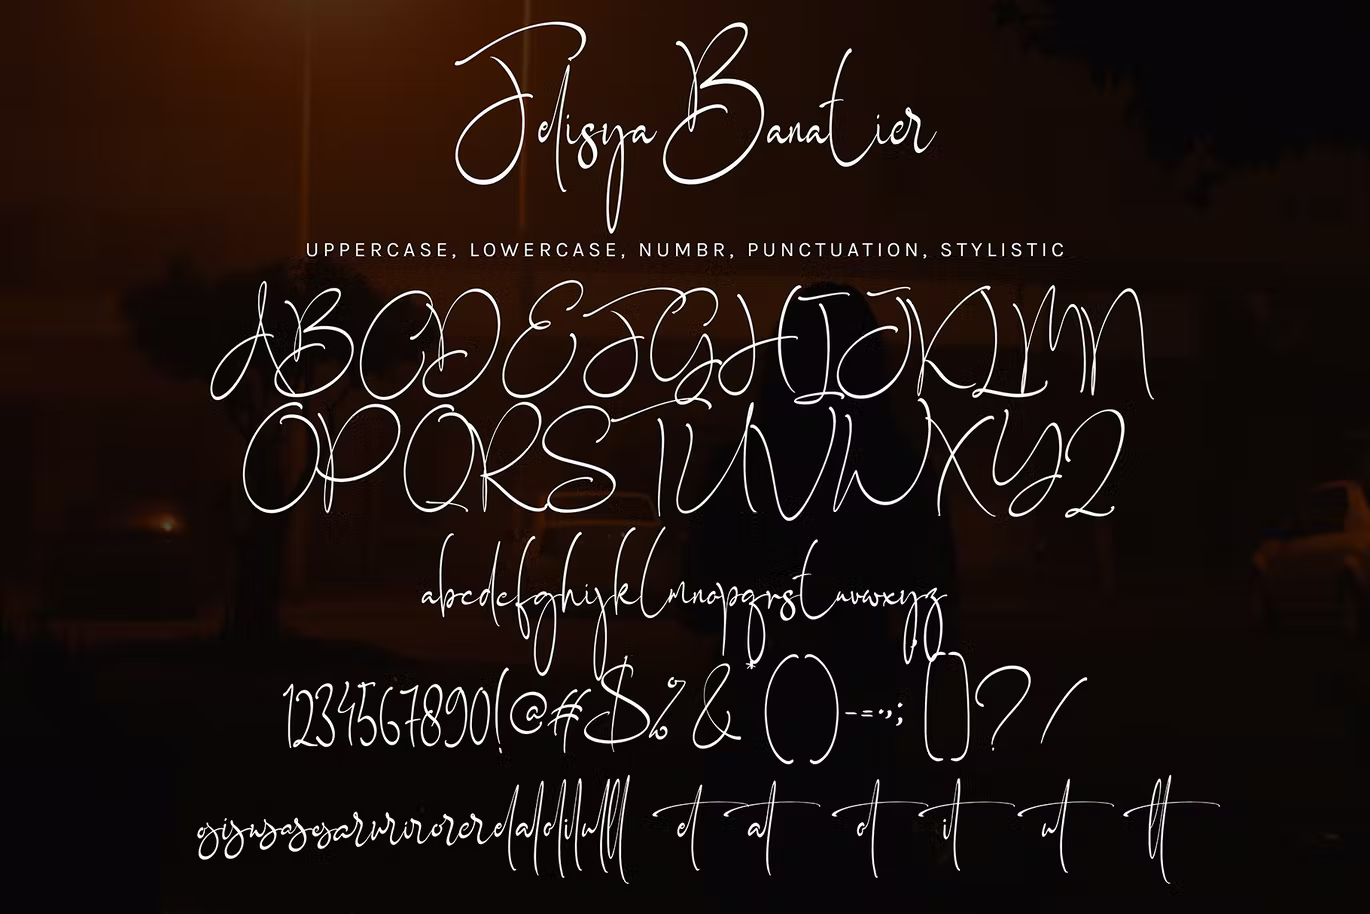 Jelisya Banatier
UPPERCASE, LOWERCASE, NUMBR, PUNCTUATION, STYLISTIC
ABCDEFGHIJKLMN
OPQRSTUVWXYZ
abcdefghijklmnopqrstuvwxyz
1234567890!@#$%&*()-=.,:;[]?/
esisusasosarurirorerelalolilulll et at ot it ut tt